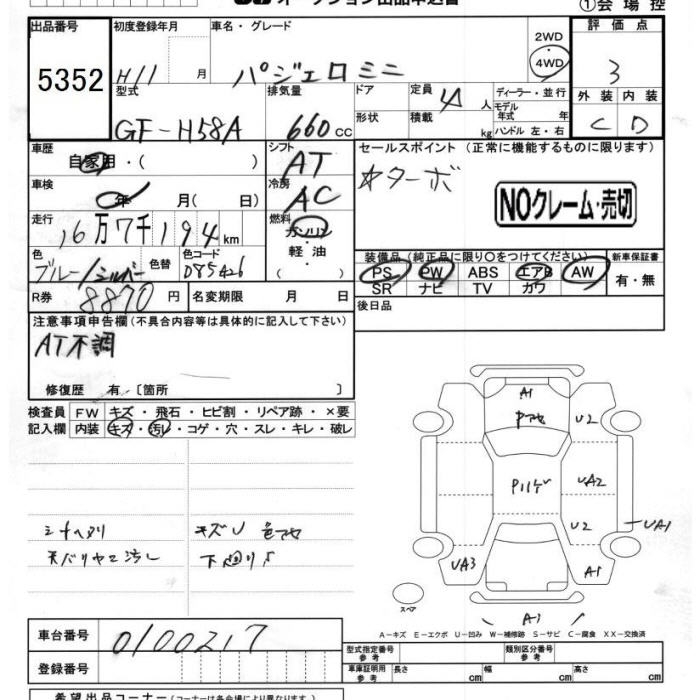 オークション出品申込書
①会場控
出品番号 初度登録年月 車名・グレード 2WD 評価点
5352 H11 月 パジェロミニ 4WD 3
型式 排気量 ドア 定員 4 人 ディーラー・並行 外装 内装
GF-H58A 660 cc 形状 積載 kg モデル年式 年 C D
ハンドル 左・右
車歴 シフト セールスポイント (正常に機能するものに限ります)
自家用・( ) AT ターボ
車検 冷房
年 月( 日) AC NOクレーム・売切
走行 燃料
16万7千194km ガソリン
色 色替 色コード 軽油 装備品(純正品に限り○をつけてください) 新車保証書
ブルー/シルバー D85426 ( ) PS PW ABS エアB AW 有・無
R券 8870 円 名変期限 月 日 SR ナビ TV カワ
注意事項申告欄(不具合内容等は具体的に記入して下さい) 後日品
AT不調
修復歴 有〔箇所 〕
検査員 FW キズ・飛石・ヒビ割・リペア跡・×要
記入欄 内装 キズ・汚レ・コゲ・穴・スレ・キレ・破レ
A1
U2
Pハゲ UA2
U2 UA1
シートヘタリ キズU 色アセ
天バリヤニ汚レ 下廻りサ
UA3 A1
スペア
A1
A-キズ E-エクボ U-凹み W-補修跡 S-サビ C-腐食 XX-交換済
車台番号 0100217
型式指定番号 参考 類別区分番号 参考
登録番号 車庫証明用 参考 長さ cm 幅 cm 高さ cm
希望出品コーナー(コーナー名は各会場により異なります)